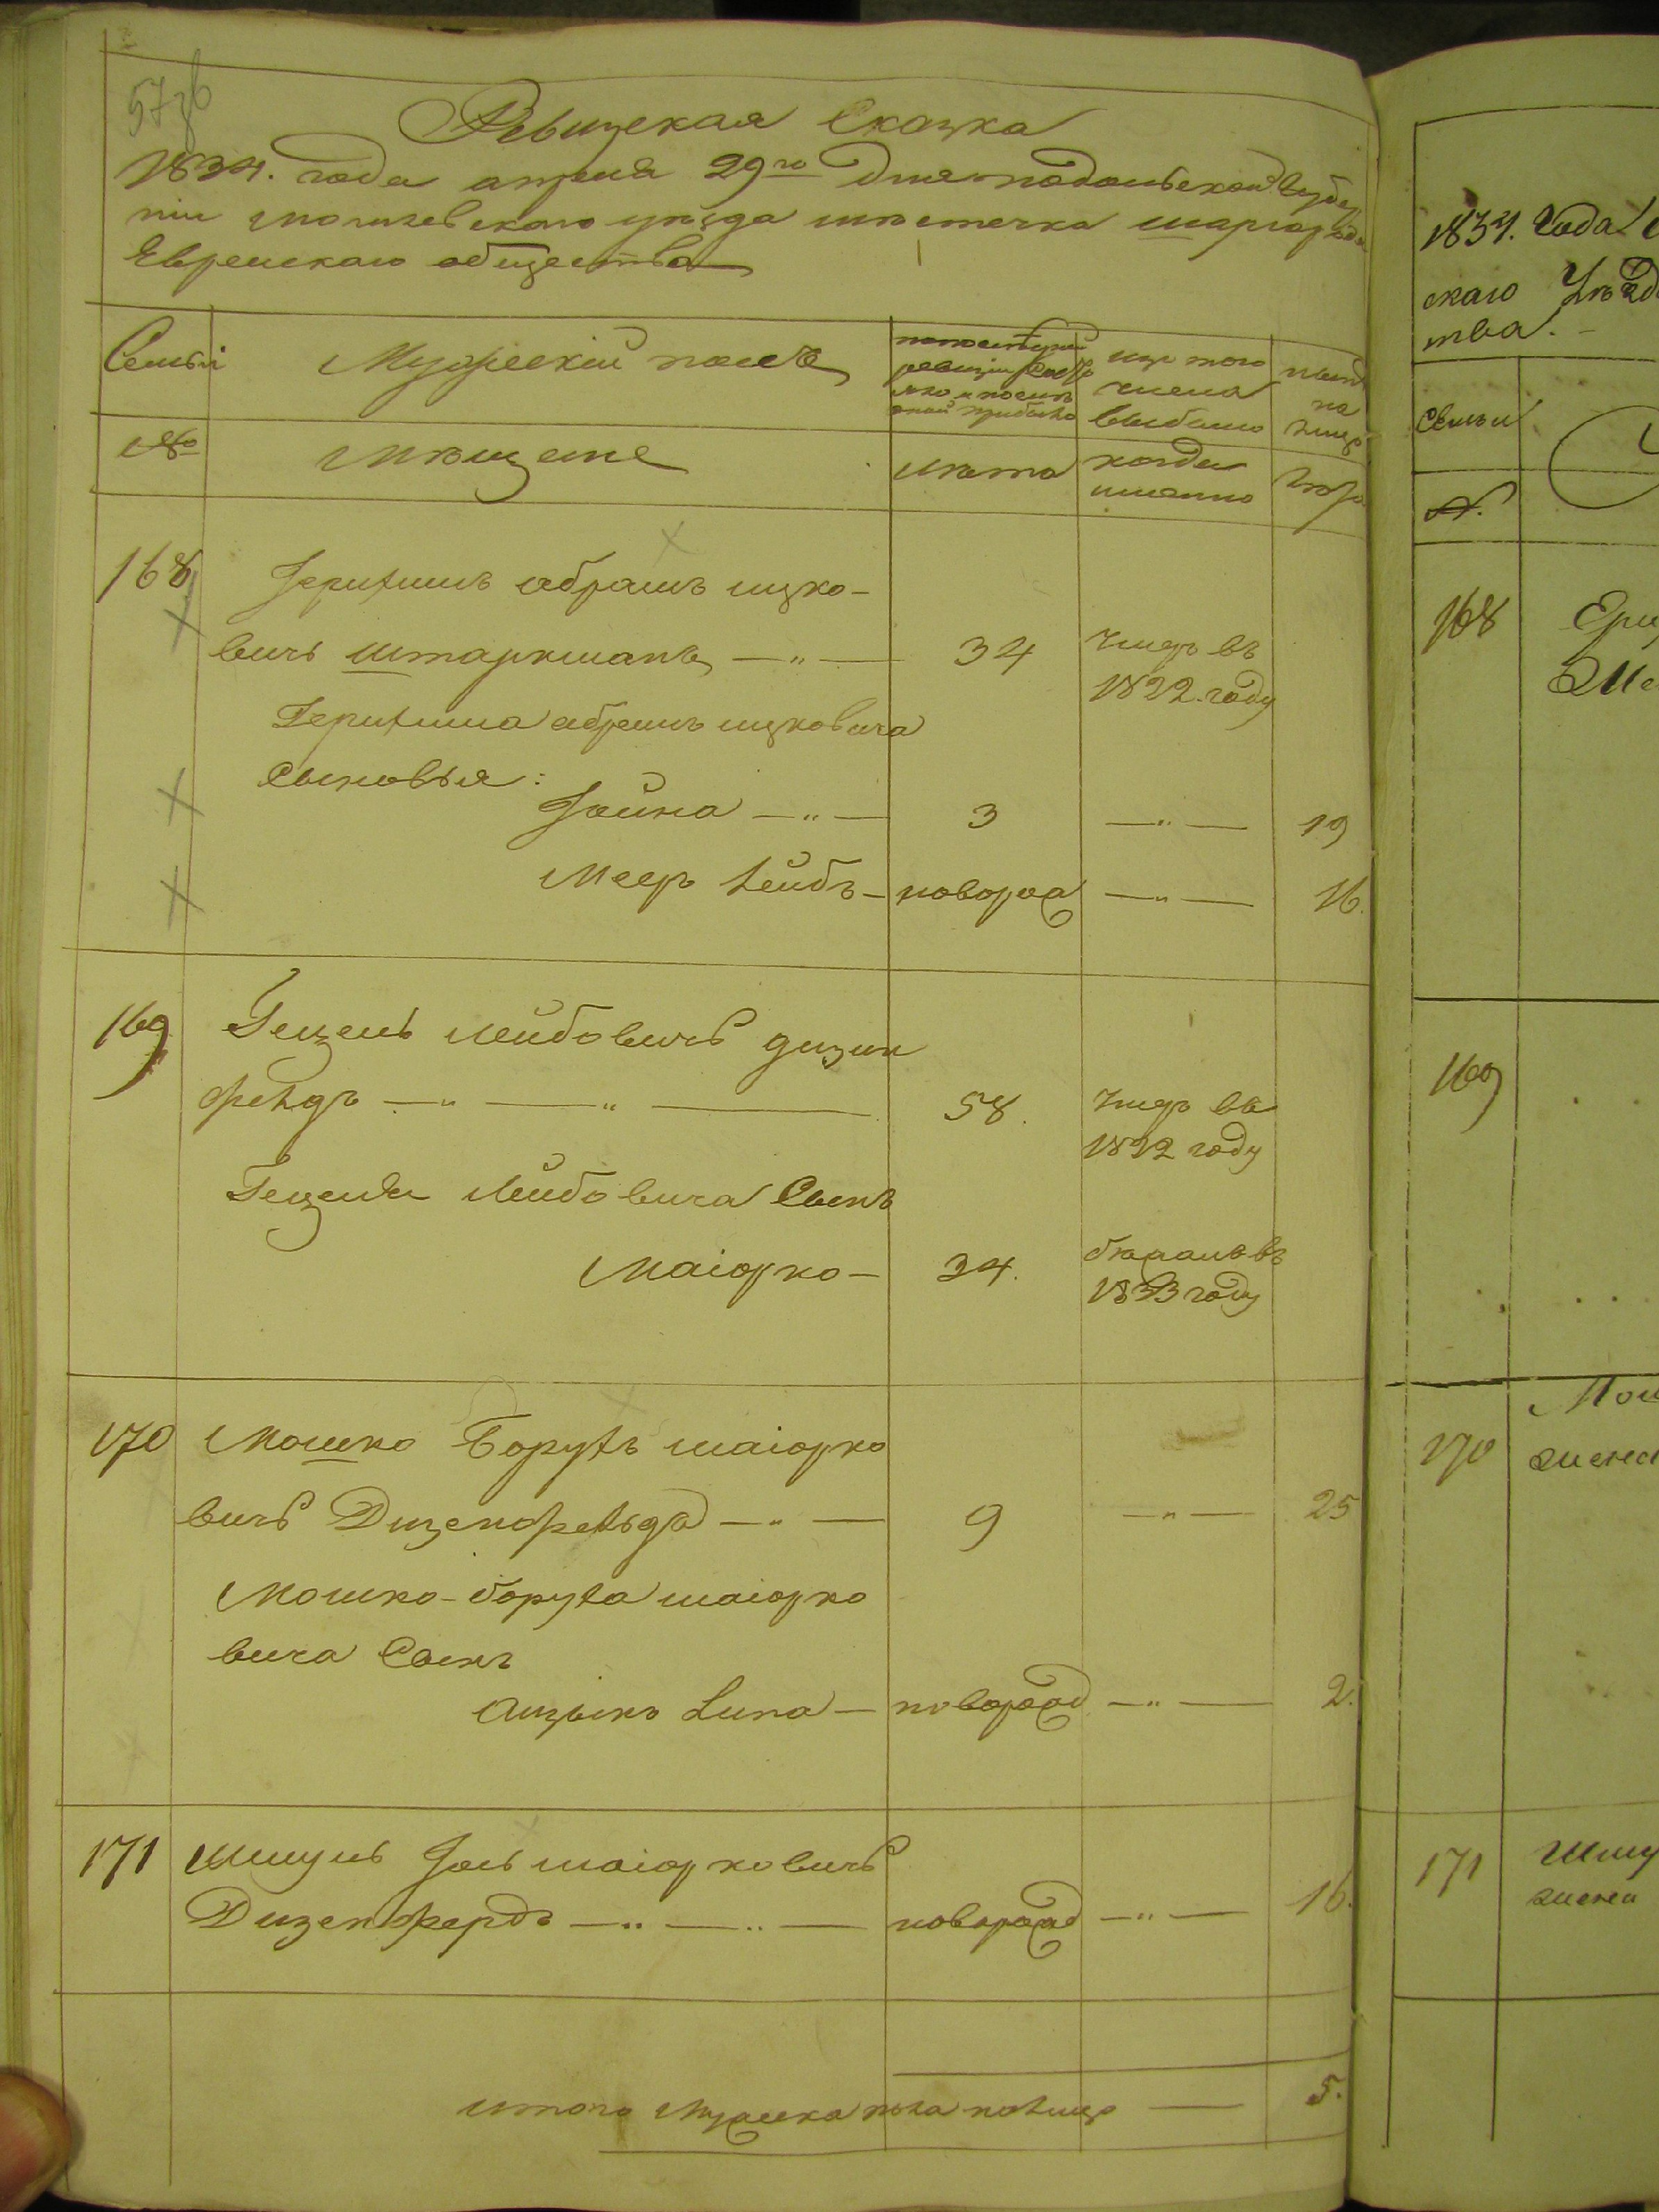 57зб
Ревизская Сказка
1834. года апреля 29го дня подольской губер
нии могилевского уезда местечка шаргорода
Еврейскаго общества
Семьи
Мужеский полъ
по последней
ревизии состо
яло и после
оной прибыло
изъ того
числа
выбыло
ныне
на
лицо
№
мещане
лета
когда
именно
лета
168
Герихимъ абрамъ ицко-
вичъ штаркманъ — „ —
34
умеръ въ
1822. году
Герихима абрамъ ицковича
сыновья:
Иойна — „ —
3
— „ —
19
Меер Лейбъ —
новорож
— „ —
16.
169
Гецель лейбовичъ дизин
фелдъ — „ — „ —
58.
умеръ въ
1822 году
Гецеля Лейбовича Сынъ
маіорко —
34.
бежалъ въ
1833 году
170
мошко Борухъ маіорко
вичъ Дизенфельдъ — „ —
9
— „ —
25
мошко-боруха маіорко
вича Сынъ
аизыкъ Липа —
новорожд
— „ —
2.
171
шмуль Иоль маіорковичъ
Дизенфердъ — „ — „ —
новорожд
— „ —
16.
итого мужеска пола налицо —
5.
1834. Года
скаго Уезд
тва. -
Семьи
№.
168
169
170
Мош
171
Шму